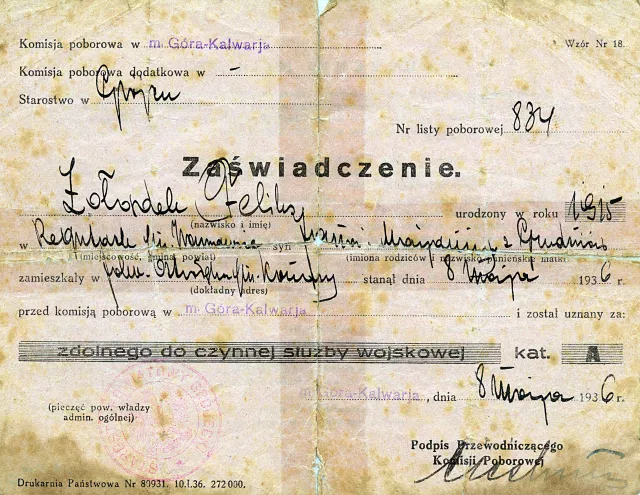 Komisja poborowa w m. Góra-Kalwarja
Wzór Nr 18.
Komisja poborowa dodatkowa w —
Starostwo w Grójcu
Nr listy poborowej 834
Zaświadczenie.
Żołądek Feliks urodzony w roku 1915
(nazwisko i imię)
w syn i z
(miejscowość, gmina, powiat) (imiona rodziców i nazwisko panieńskie matki)
zamieszkały w stanął dnia 8 Maja 1936 r.
(dokładny adres)
przed komisją poborową w m. Góra-Kalwarja i został uznany za:
zdolnego do czynnej służby wojskowej kat. A
m. Góra-Kalwarja, dnia 8 Maja 1936 r.
(pieczęć pow. władzy
admin. ogólnej)
Podpis Przewodniczącego
Komisji Poborowej
Drukarnia Państwowa Nr 80931. 10.I.36. 272000.